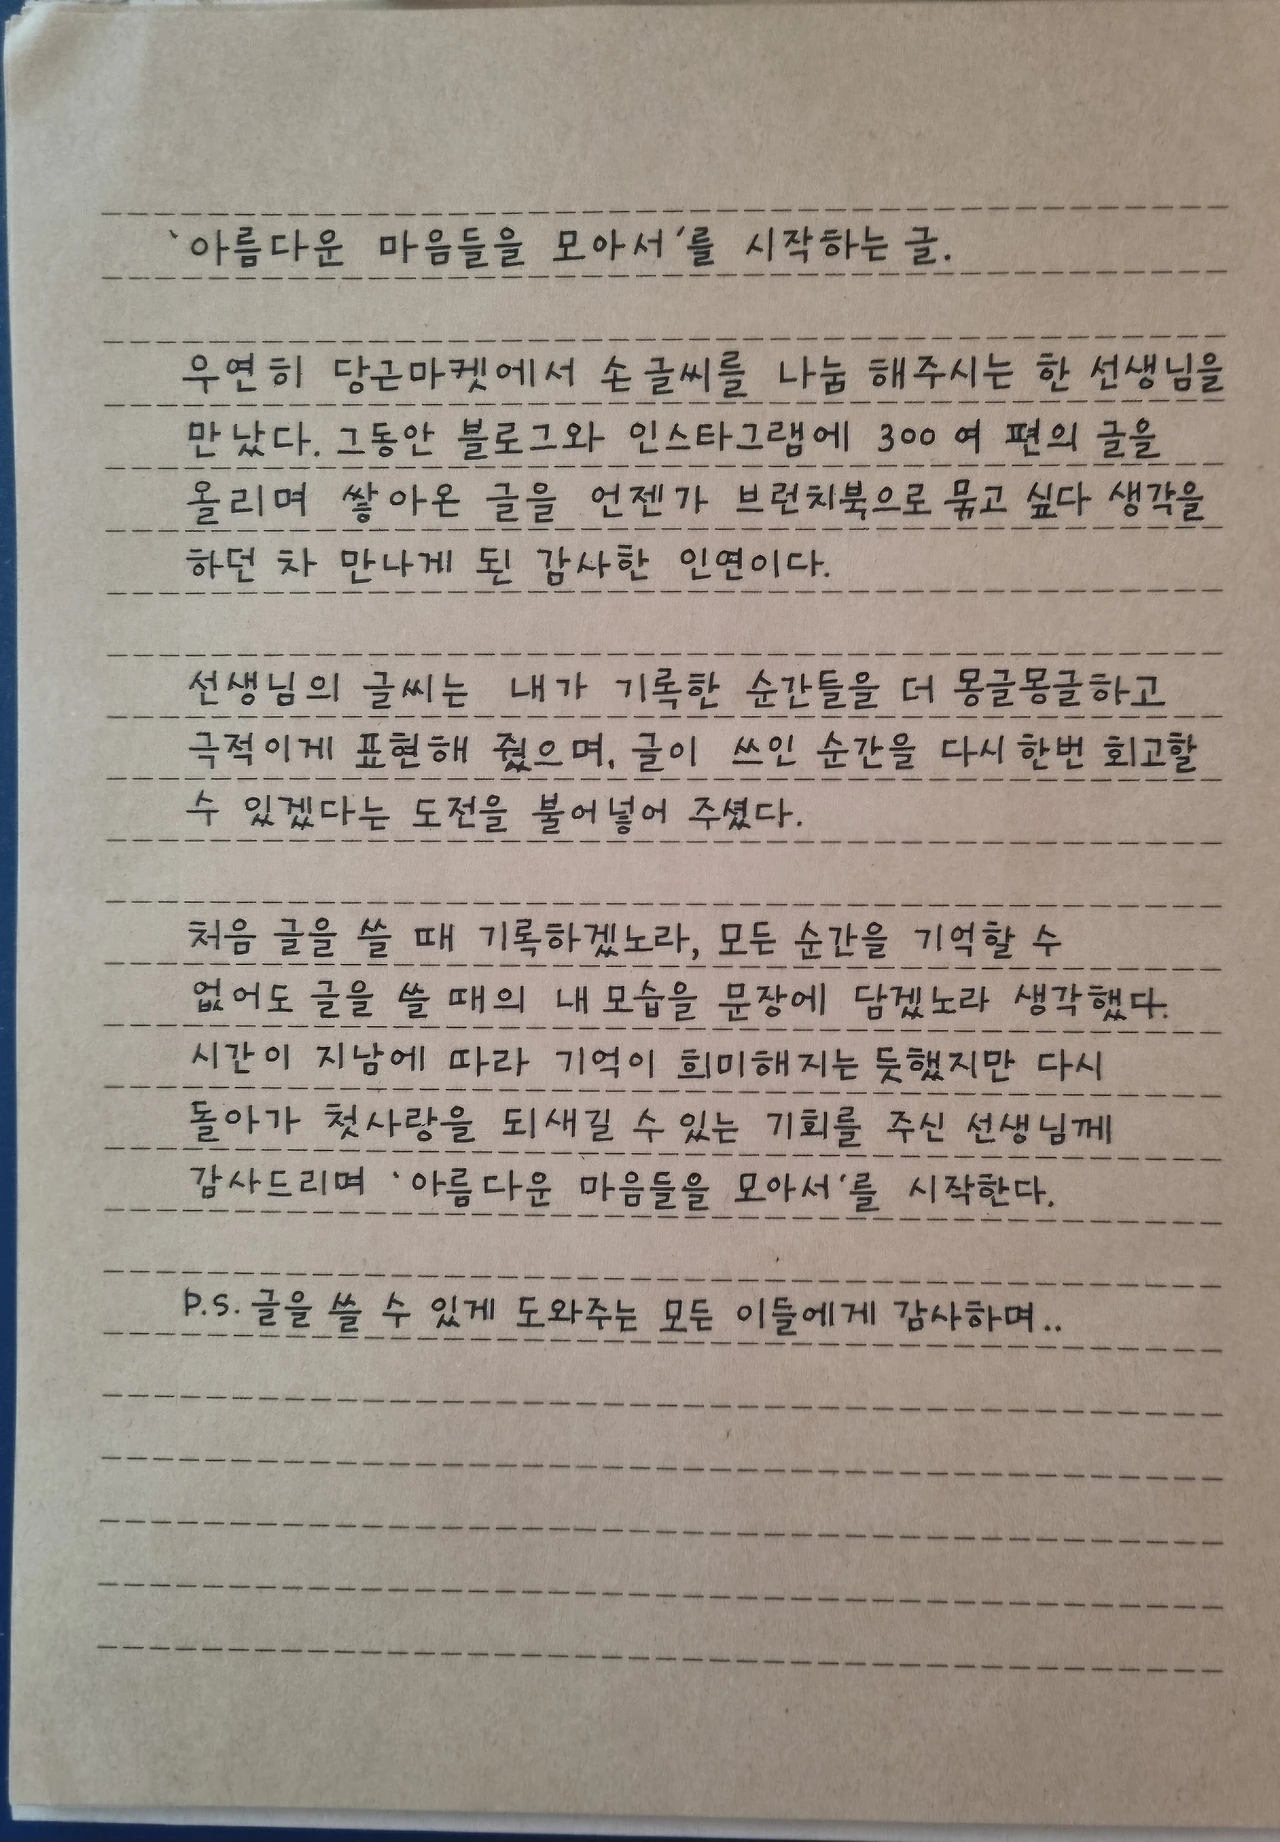 '아름다운 마음들을 모아서'를 시작하는 글.
우연히 당근마켓에서 손글씨를 나눔 해주시는 한 선생님을
만났다. 그동안 블로그와 인스타그램에 300 여 편의 글을
올리며 쌓아온 글을 언젠가 브런치북으로 묶고 싶다 생각을
하던 차 만나게 된 감사한 인연이다.
선생님의 글씨는 내가 기록한 순간들을 더 몽글몽글하고
극적이게 표현해 줬으며, 글이 쓰인 순간을 다시 한번 회고할
수 있겠다는 도전을 불어넣어 주셨다.
처음 글을 쓸 때 기록하겠노라, 모든 순간을 기억할 수
없어도 글을 쓸 때의 내 모습을 문장에 담겠노라 생각했다.
시간이 지남에 따라 기억이 희미해지는 듯했지만 다시
돌아가 첫사랑을 되새길 수 있는 기회를 주신 선생님께
감사드리며 '아름다운 마음들을 모아서'를 시작한다.
P.S. 글을 쓸 수 있게 도와주는 모든 이들에게 감사하며..